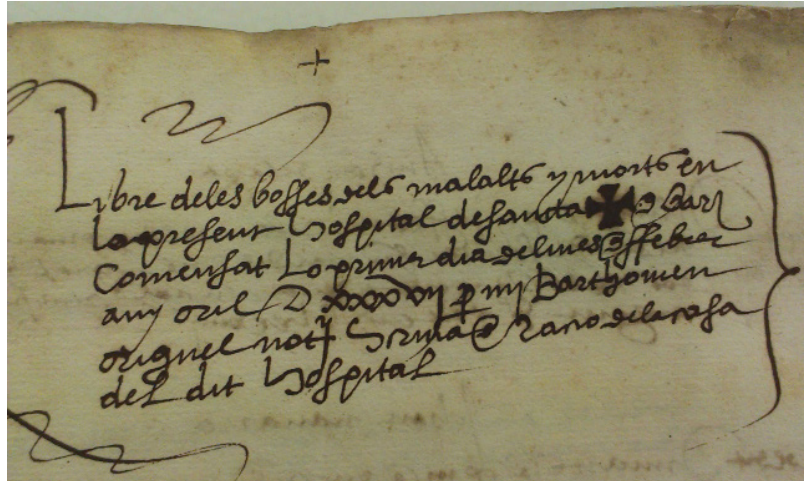 Libre deles bosses dels malalts y morts en
lo present hospital de santa ✠ d Bar
Comensat lo primer dia del mes d ffebrer
any mil D xxxxvii per mi Barthomeu
notr scriva d racio dela casa
del dit hospital